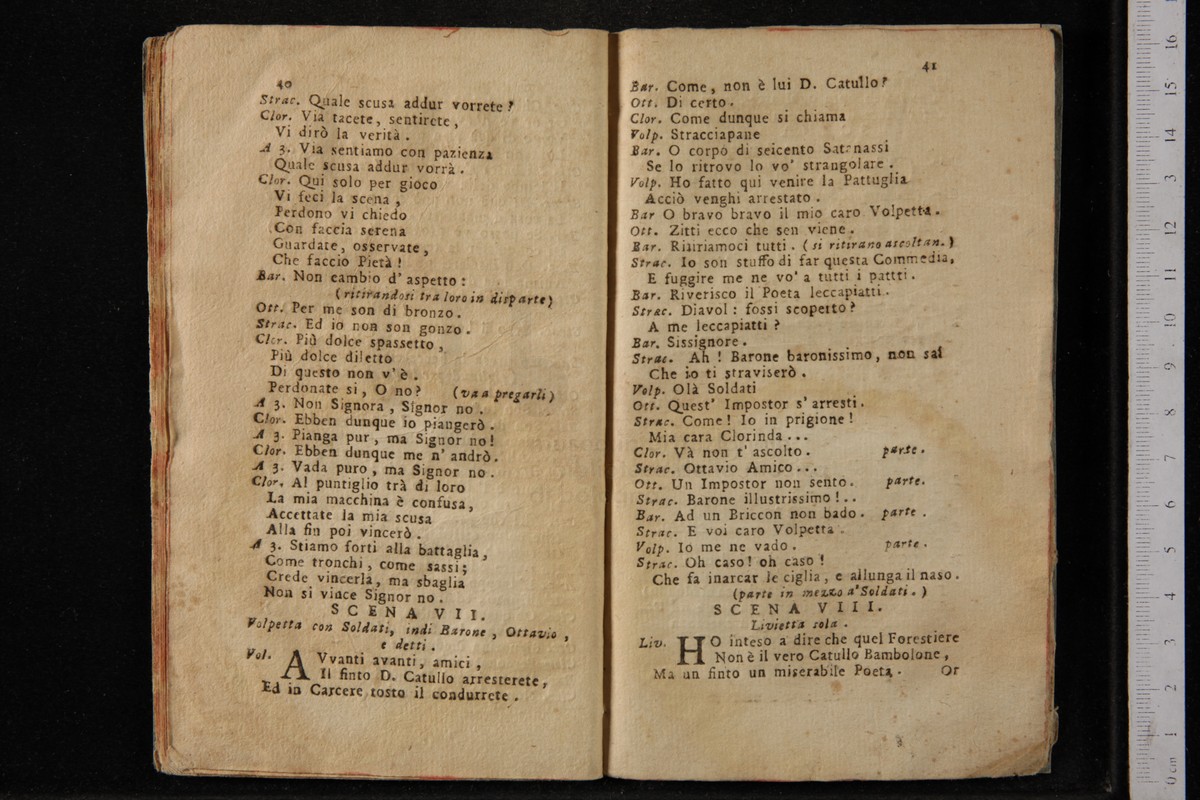 40
Strac. Quale scusa addur vorrete?
Clor. Via tacete, sentirete,
Vi dirò la verità.
A 3. Via sentiamo con pazienza
Quale scusa addur vorrà.
Clor. Qui solo per gioco
Vi feci la scena,
Perdono vi chiedo
Con faccia serena
Guardate, osservate,
Che faccio Pietà!
Bar. Non cambio d'aspetto:
(ritirandosi tra loro in disparte)
Ott. Per me son di bronzo.
Strac. Ed io non son gonzo.
Clor. Più dolce spassetto,
Più dolce diletto
Di questo non v'è.
Perdonate si, O no? (va a pregarli)
A 3. Non Signora, Signor no.
Clor. Ebben dunque io piangerò.
A 3. Pianga pur, ma Signor no!
Clor. Ebben dunque me n'andrò.
A 3. Vada puro, ma Signor no.
Clor. Al puntiglio trà di loro
La mia macchina è confusa,
Accettate la mia scusa
Alla fin poi vincerò.
A 3. Stiamo forti alla battaglia,
Come tronchi, come sassi;
Crede vincerla, ma sbaglia
Non si vince Signor no.
SCENA VII.
Volpetta con Soldati, indi Barone, Ottavio,
e detti.
Vol. AVvanti avanti, amici,
Il finto D. Catullo arresterete,
Ed in Carcere tosto il condurrete.
41
Bar. Come, non è lui D. Catullo?
Ott. Di certo.
Clor. Come dunque si chiama
Volp. Stracciapane
Bar. O corpo di seicento Satanassi
Se lo ritrovo lo vo' strangolare.
Volp. Ho fatto qui venire la Pattuglia
Acciò venghi arrestato.
Bar O bravo bravo il mio caro Volpetta.
Ott. Zitti ecco che sen viene.
Bar. Ritiriamoci tutti. (si ritirano ascoltan.)
Strac. Io son stuffo di far questa Commedia,
E fuggire me ne vo' a tutti i pattti.
Bar. Riverisco il Poeta leccapiatti.
Strac. Diavol: fossi scoperto?
A me leccapiatti?
Bar. Sissignore.
Strac. Ah! Barone baronissimo, non sai
Che io ti straviserò.
Volp. Olà Soldati
Ott. Quest' Impostor s'arresti.
Strac. Come! Io in prigione!
Mia cara Clorinda...
Clor. Và non t'ascolto. parte.
Strac. Ottavio Amico...
Ott. Un Impostor non sento. parte.
Strac. Barone illustrissimo!..
Bar. Ad un Briccon non bado. parte.
Strac. E voi caro Volpetta.
Volp. Io me ne vado. parte.
Strac. Oh caso! oh caso!
Che fa inarcar le ciglia, e allunga il naso.
(parte in mezzo a'Soldati.)
SCENA VIII.
Livietta sola.
Liv. HO inteso a dire che quel Forestiere
Non è il vero Catullo Bambolone,
Ma un finto un miserabile Poeta. Or
0 cm 1 2 3 4 5 6 7 8 9 10 11 12 13 14 15 16